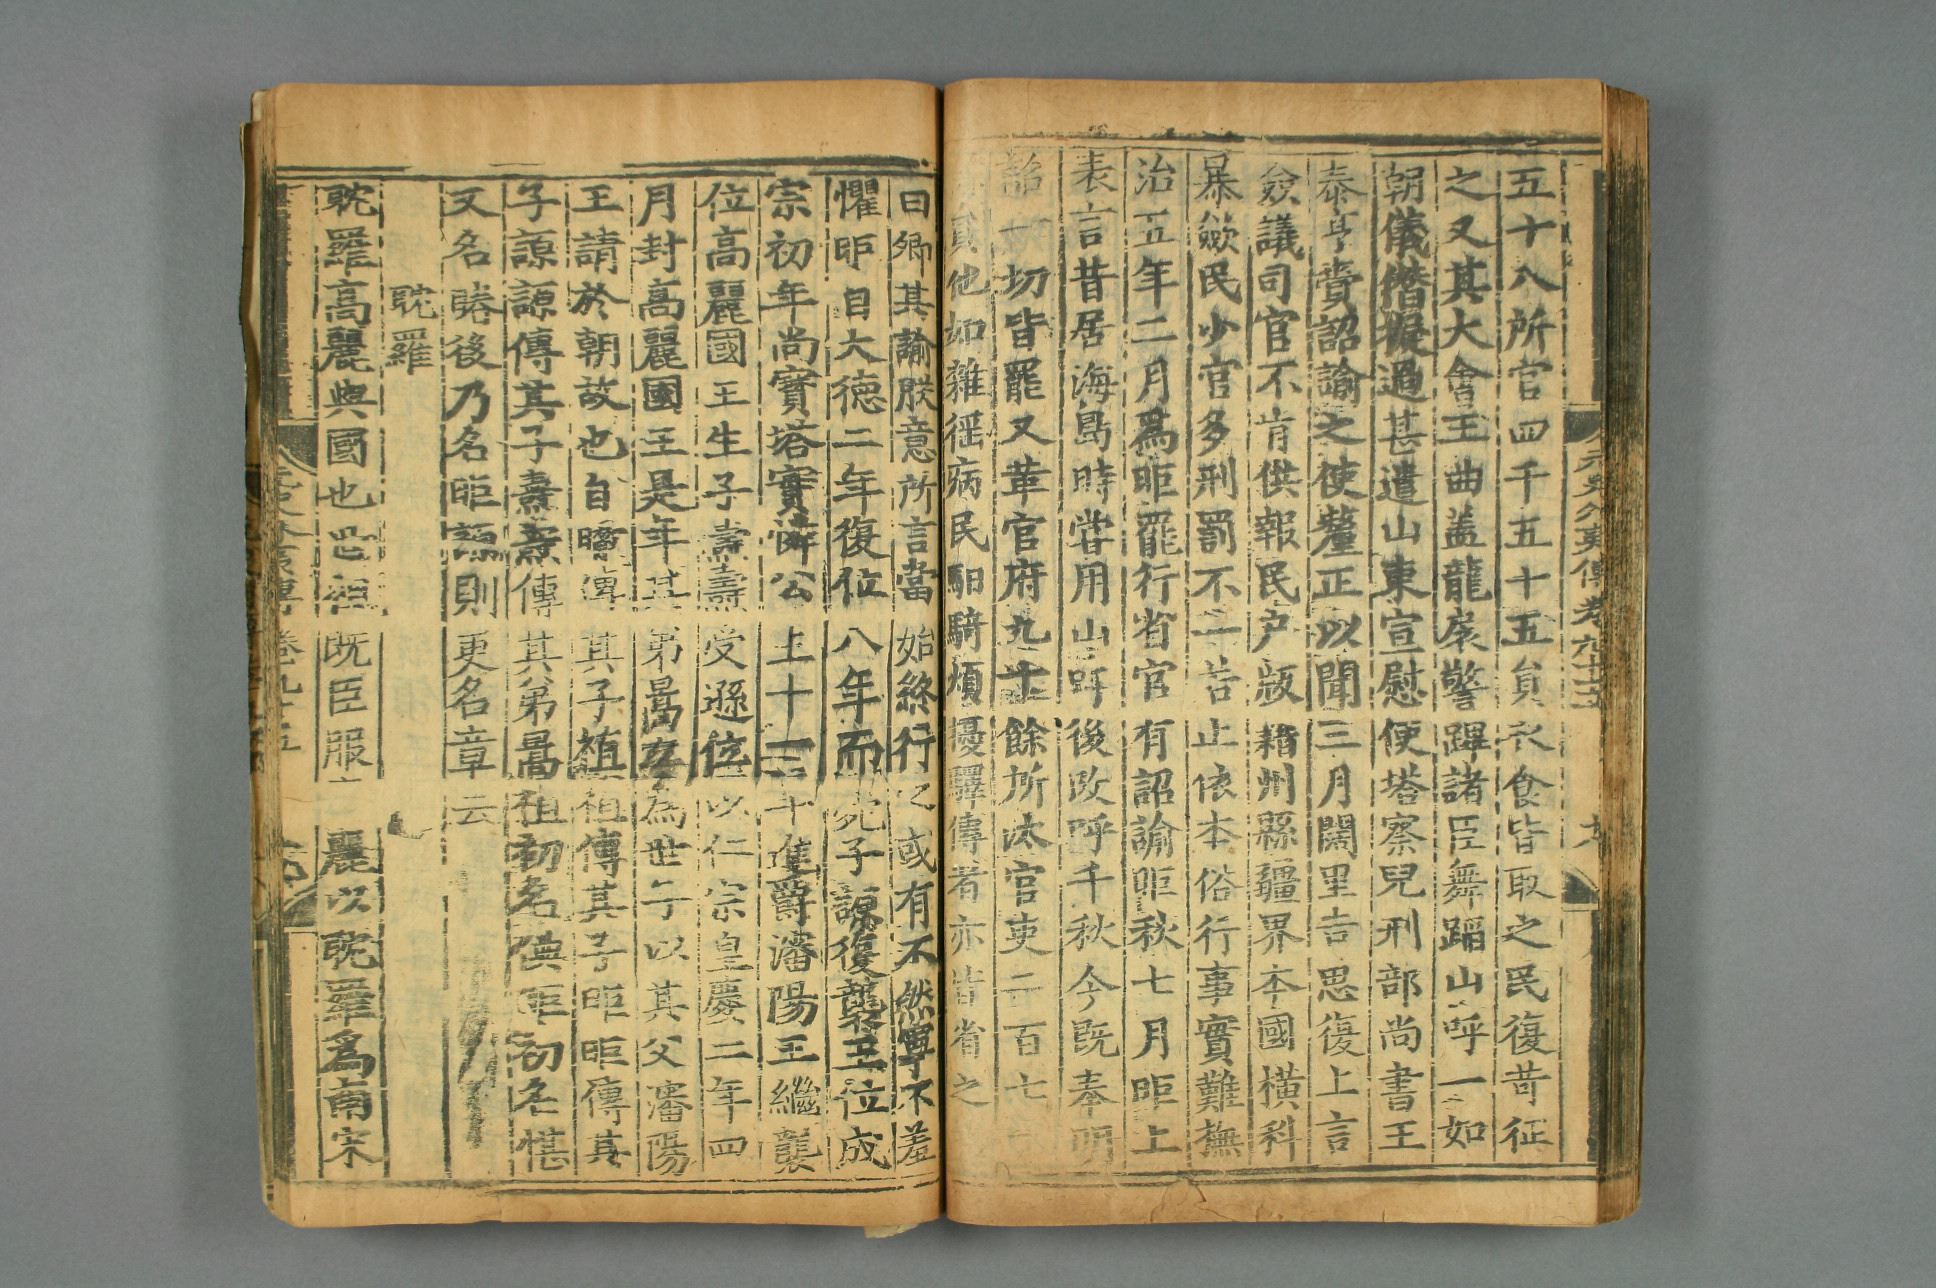 五十八所官四千五十五員衣食皆取之民復苛征
之又其大會王曲盖龍扆警蹕諸臣舞蹈山呼一如
朝儀僭擬過甚遣山東宣慰使塔察兒刑部尚書王
泰亨賫詔諭之使釐正以聞三月闊里吉思復上言
僉議司官不肯供報民户版籍州縣疆界本國橫科
暴歛民少官多刑罰不一若止依本俗行事實難撫
治五年二月爲昛罷行省官有詔諭昛秋七月昛上
表言昔居海島時嘗用山呼後改呼千秋今既奉明
詔一切皆罷又革官府九十餘所汰官吏二百七
他如雜徭病民馹騎煩擾驛傳者亦皆省之
曰卿其諭朕意所言當始終行之或有不然寧不羞
懼昛自大德二年復位八年而死子謜復襲王位成
宗初年尚寳塔實憐公主十一年進爵瀋陽王繼襲
位高麗國王生子燾燾受遜位以仁宗皇慶二年四
月封高麗國王是年其弟暠立爲世子以其父瀋陽
王請於朝故也自㬚傳其子禃禃傳其子昛昛傳其
子謜謜傳其子燾燾傳其弟暠禃初名倎昛初名愖
又名賰後乃名昛謜則更名章云
耽羅
耽羅高麗與國也世祖既臣服高麗以耽羅爲南宋
元史外夷傳卷九十五